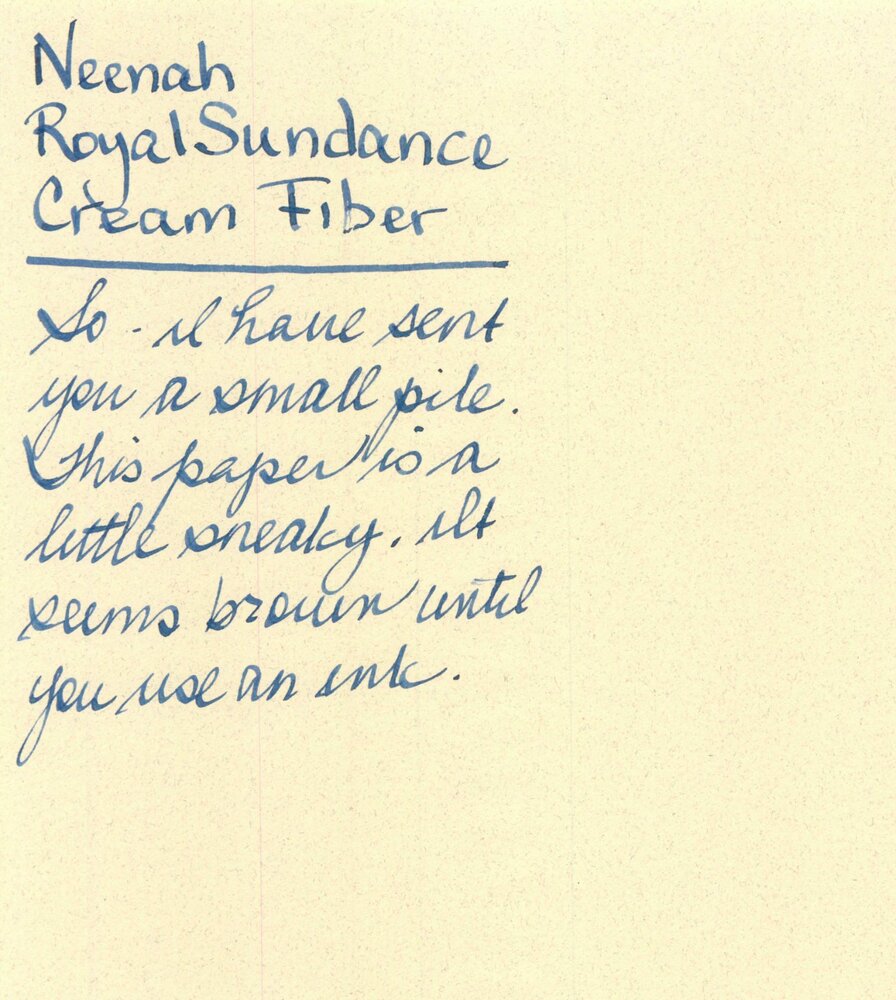 Neenah
Royal Sundance
Cream Fiber
So - I have sent
you a small pile.
This paper is a
little sneaky. It
seems brown until
you use an ink.